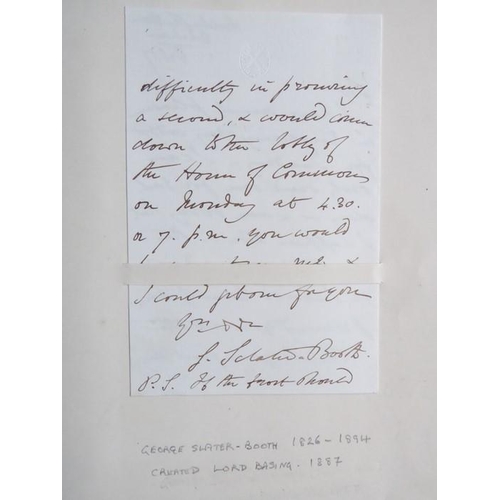 difficulty in procuring
a second, & would come
down to the lobby of
the House of Commons
on Monday at 4.30.
or 7. p.m. you would
I could for you
G. Sclater-Booth.
P.S. If the frost should
GEORGE SLATER-BOOTH 1826-1894
CREATED LORD BASING. 1887